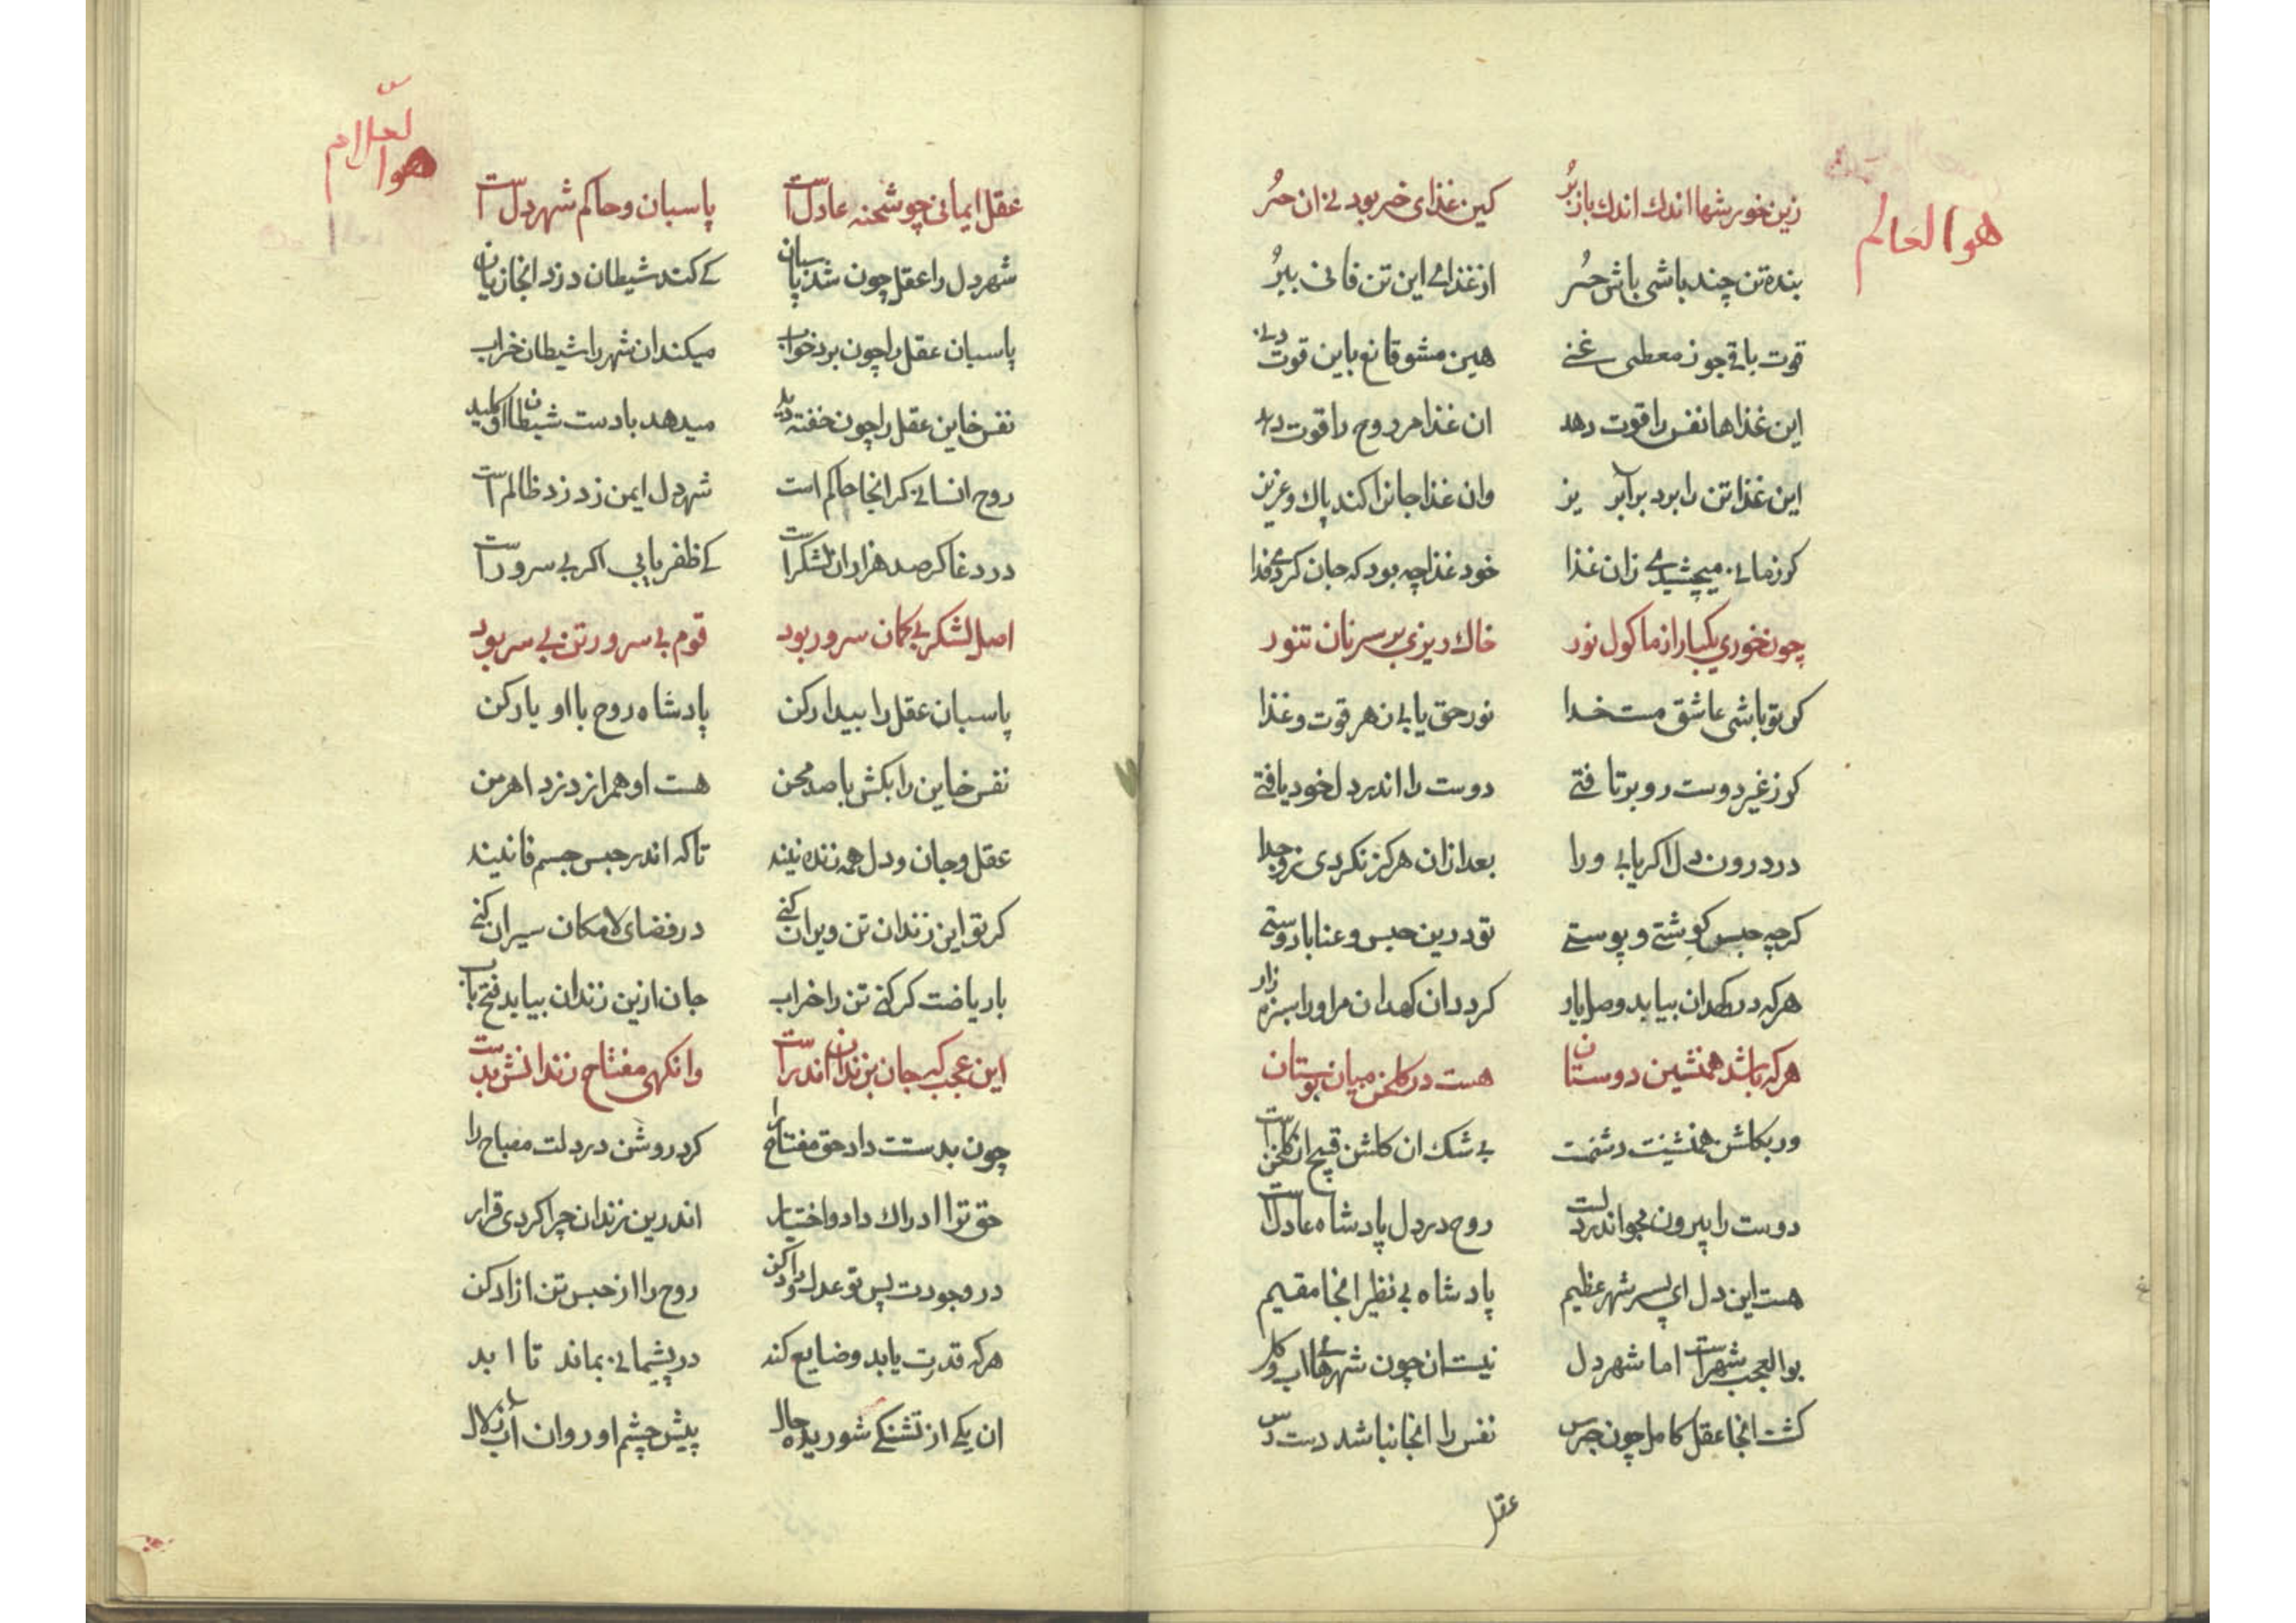 هوا العالم
زین خورشها اندك اندك باز بُر کین غذای خر بود نی ان حُر
بنده تن چند باشی باش حُر از غذای این تن فانی ببُر
قوت باقی جو ز معطی غنی هین مشو قانع باین قوت دنی
این غذاها نفس را قوت دهد ان غذا مر روح را قوت دهد
این غذا تن را برد بر آبریز وان غذا جانرا کند پاك و عزیز
کر زمانی میچشیدی زان غذا خود غذا چه بود که جان کردی فدا
چون خوری یکبار از ماکول نور خاك ریزی بر سر نان تنور
کر تو باشی عاشق مست خدا نور حق یابی ز هر قوت و غذا
کر ز غیر دوست رو برتافتی دوست را اندر دل خود یافتی
در درون دل اکر یابی ورا بعد ازان هرکز نکردی زو جدا
کرچه حبس کوشتی و پوستی تو درین حبس و عنا با دوستی
هرکه در کهدان بیابد وصل یار کردد ان کهدان مر اورا سبزه زار
هرکه باشد همنشین دوستان هست در کلخن میان بوستان
ور بکلشن همنشینت دشمنت بی شك ان کلشن قبیح ان کلخن است
دوست را بیرون مجو اندر دلست روح در دل پادشاه عادلست
هست این دل ای پسر شهر عظیم پادشاه بی نظیر انجا مقیم
بو العجب شهر است اما شهر دل نیست ان چون شهرهای اب و کل
کشت انجا عقل کامل چون جرس نفس را انجا نباشد دست رس
عقل
هوا العلام
عقل ایمانی چو شحنه عادل است پاسبان و حاکم شهر دل است
شهر دل را عقل چون شد پاسبان کی کند شیطان دزد انجا زیان
پاسبان عقل را چون برد خواب میکند ان شهر را شیطان خراب
نفس خاین عقل را چون خفته دید میدهد با دست شیطان او کلید
روح انسانی کر انجا حاکم است شهر دل ایمن ز دزد ظالم است
در دغا کر صد هزاران لشکر است کی ظفر یابی اکر بی سرور است
اصل لشکر بی کمان سرور بود قوم بی سرور تن بی سر بود
پاسبان عقل را بیدار کن پادشاه روح با او یار کن
نفس خاین را بکش با صد محن هست او همراز دزد اهرمن
عقل و جان و دل همه زنده نیند تا که اندر حبس جسم فانیند
کر تو این زندان تن ویران کنی در فضای لامکان سیران کنی
با ریاضت کر کنی تن را خراب جان ازین زندان بیابد فتح باب
این عجب که جان بزندان اندر است وانکهی مفتاح زندانش بدست
چون بدستت داد حق مفتاح را کرد روشن در دلت مصباح را
حق ترا ادراك داد و اختیار اندرین زندان چرا کردی قرار
در وجودت پس تو عدل و داد کن روح را از حبس تن ازاد کن
هرکه قدرت یابد و ضایع کند در پشیمانی بماند تا ابد
ان یکی از تشنکی شوریده حال پیش چشم او روان آب زلال